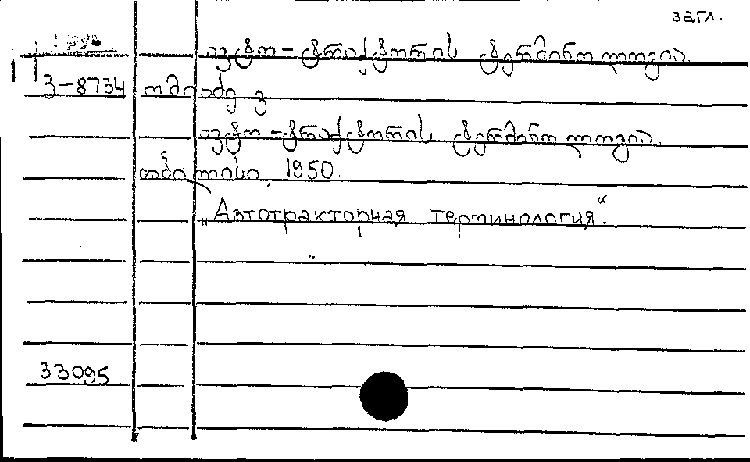 загл.
ავტო-ტრაქტორის ტერმინოლოგია.
3-8734
ავტო-ტრაქტორის ტერმინოლოგია.
თბილისი, 1950.
„Автотракторная терминология".
33095